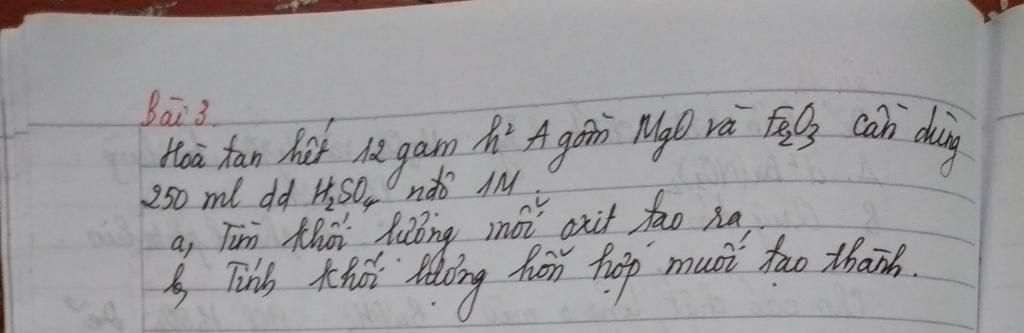 Bài 3
Hoà tan hết 12 gam h² A gồm MgO và Fe₂O₃ cần dùng
250 ml dd H₂SO₄ nđộ 1M.
a, Tìm khối lượng mỗi oxit tạo ra.
b, Tính khối lượng hỗn hợp muối tạo thành.